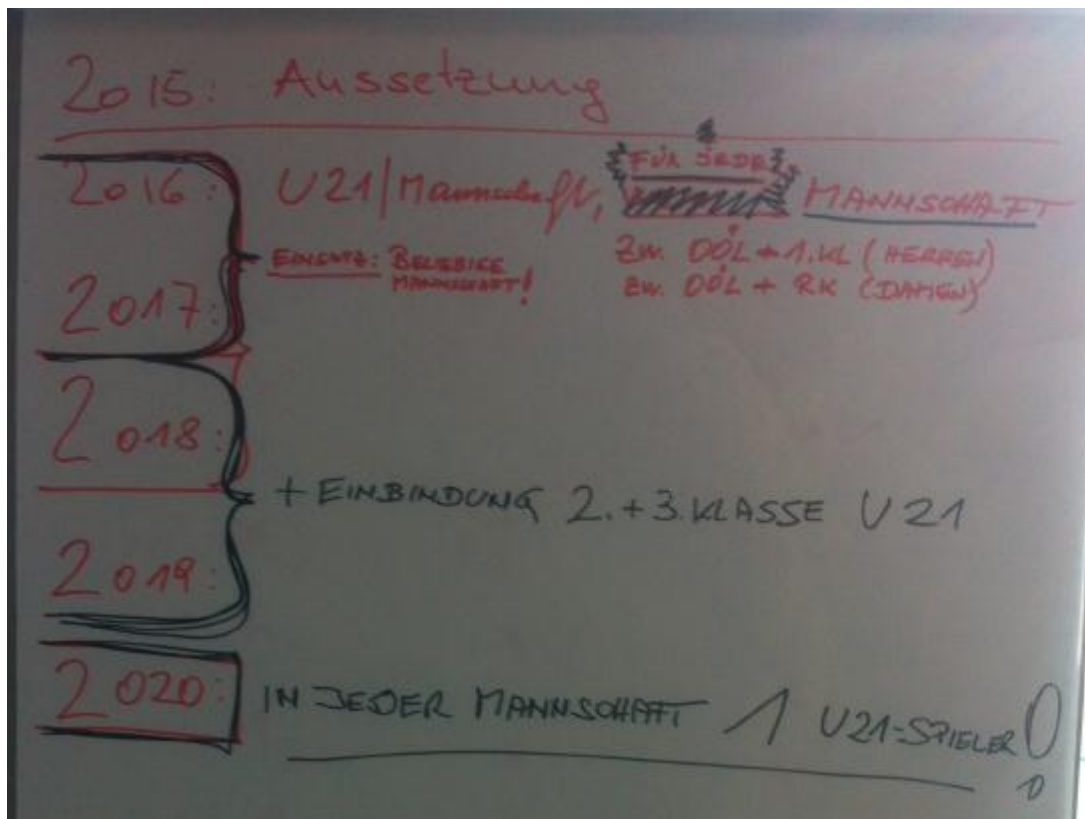 2015: Aussetzung
2016: U21/Mannschaft, FÜR JEDE MANNSCHAFT
EINSATZ: BELIEBIGE MANNSCHAFT!
ZW. OÖL + 1.KL (HERREN)
ZW. OÖL + RK (DAMEN)
2017:
2018:
+ EINBINDUNG 2. + 3. KLASSE U21
2019:
2020: IN JEDER MANNSCHAFT 1 U21-SPIELER!